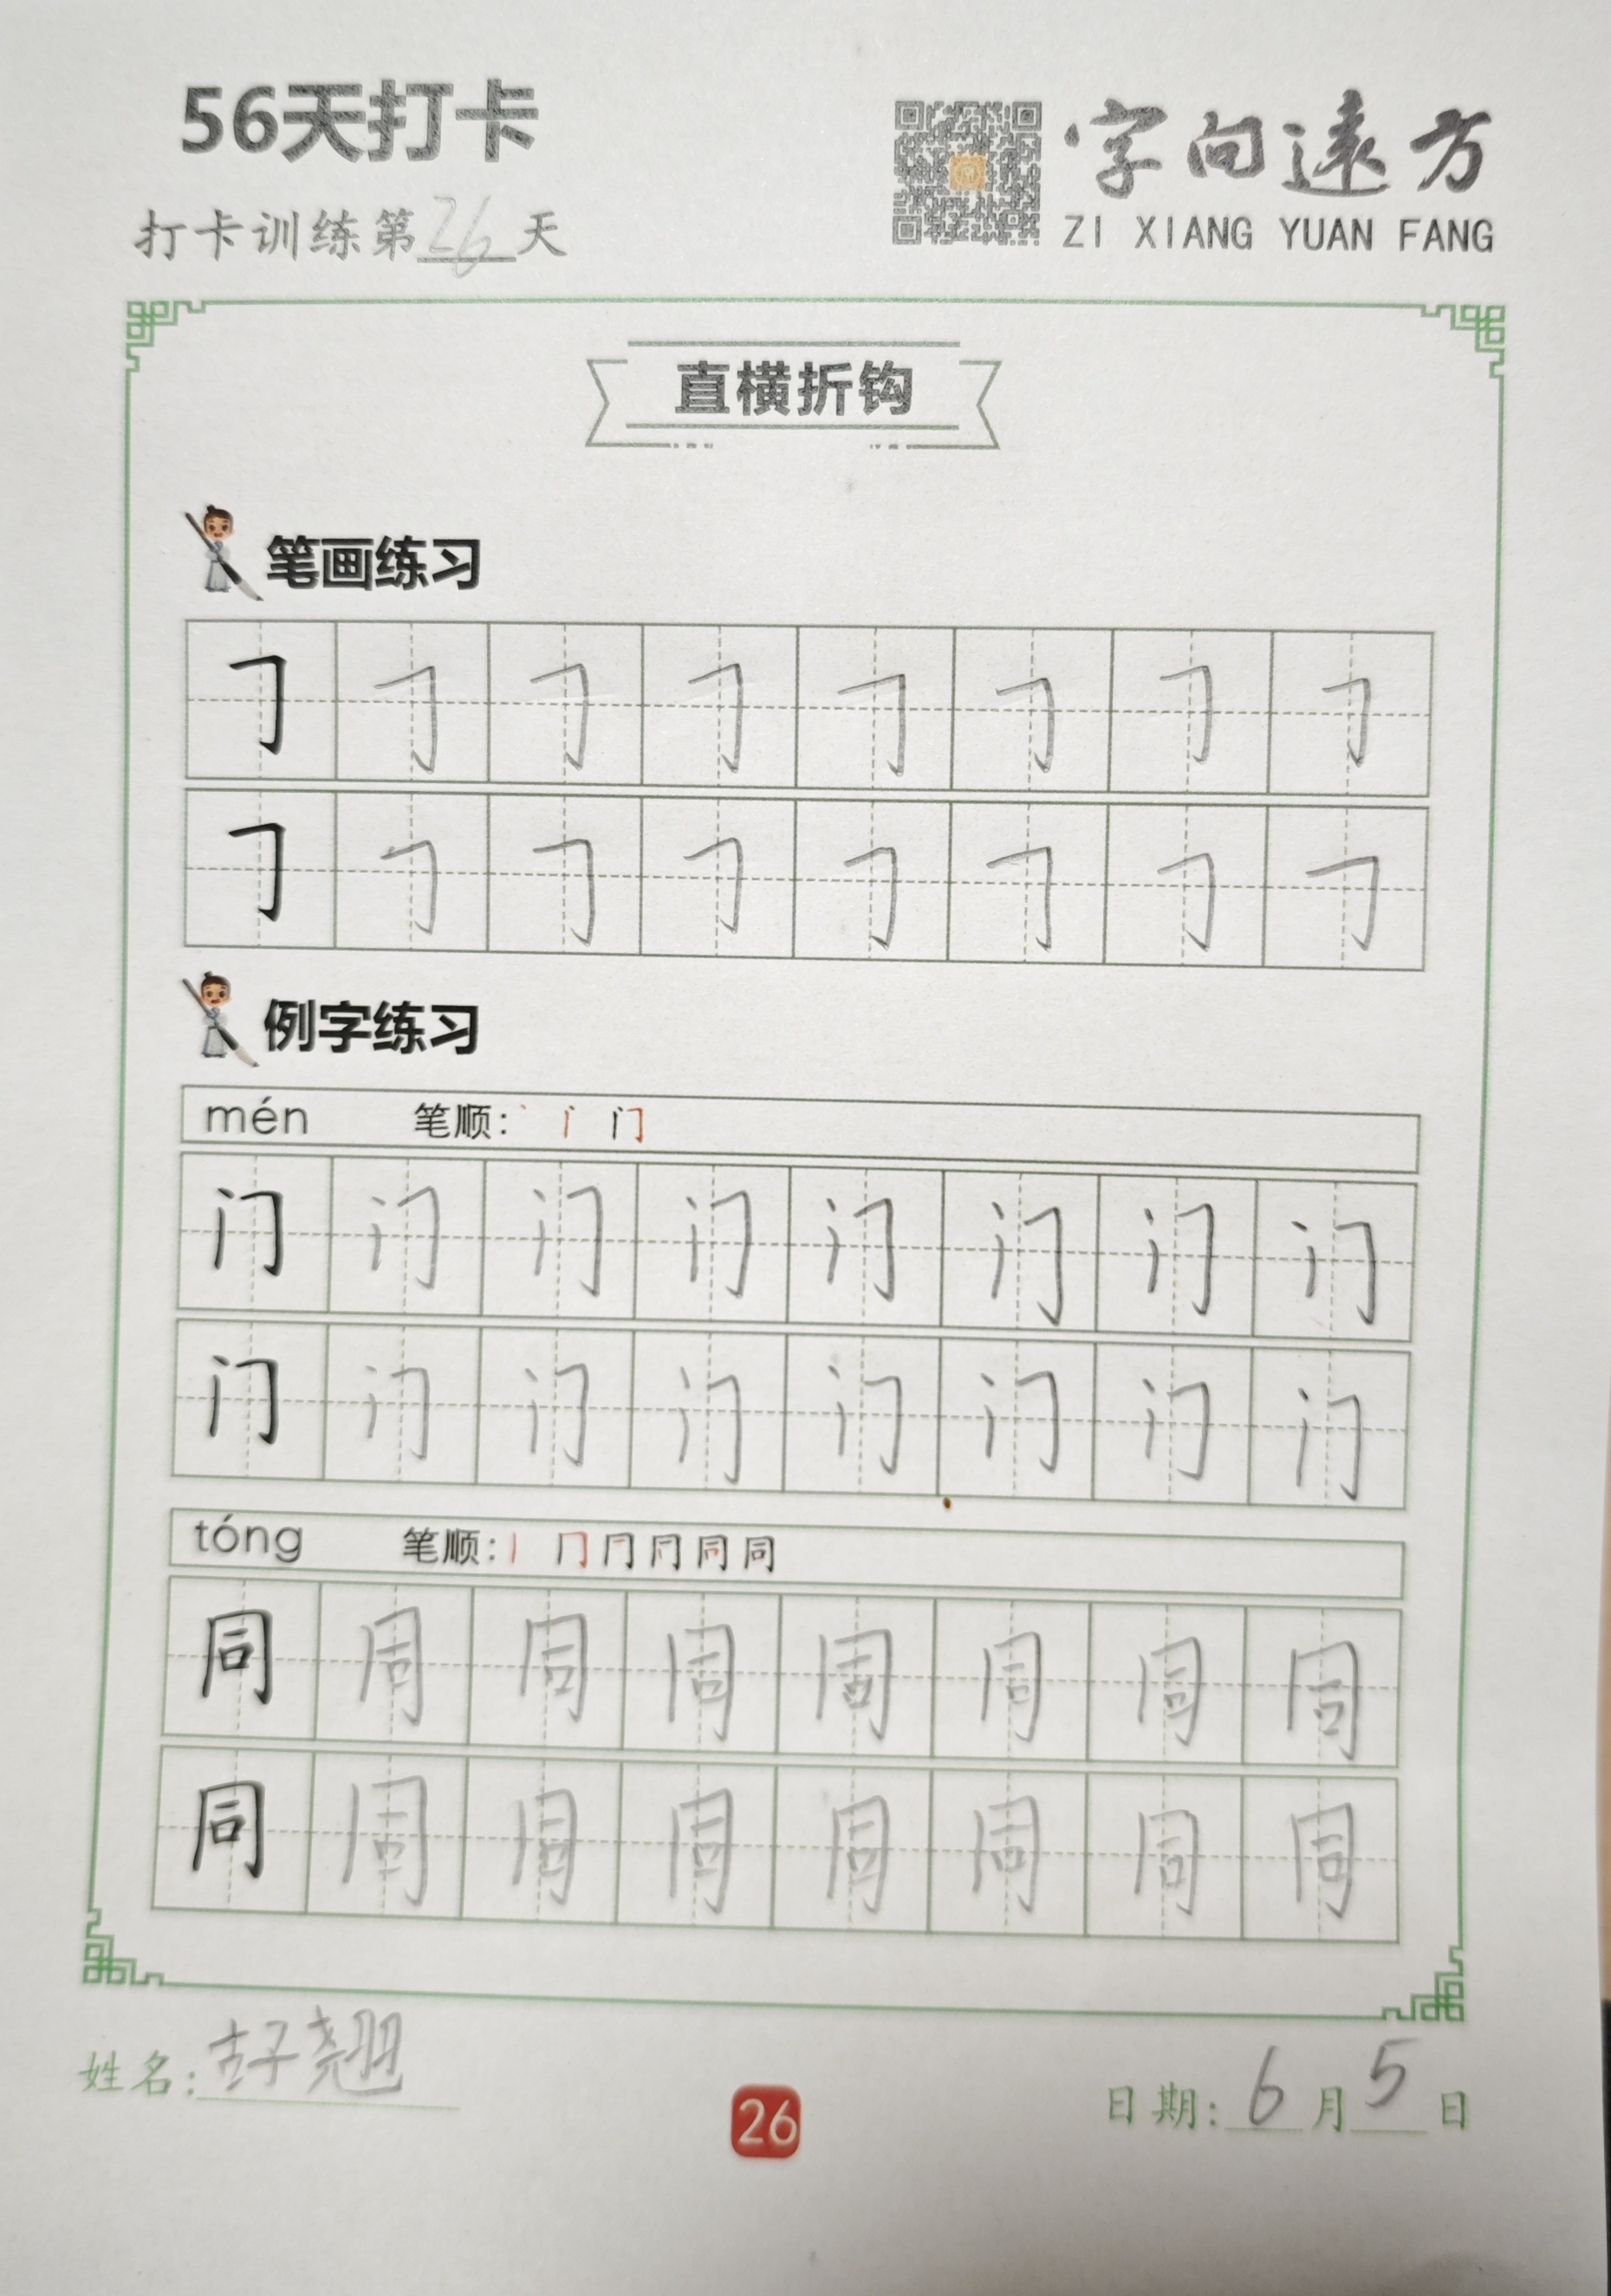 56天打卡
打卡训练第26天
字向遠方
ZI XIANG YUAN FANG
直横折钩
笔画练习
𠃌 𠃌 𠃌 𠃌 𠃌 𠃌 𠃌 𠃌
𠃌 𠃌 𠃌 𠃌 𠃌 𠃌 𠃌 𠃌
例字练习
mén 笔顺: 门
门 门 门 门 门 门 门 门
门 门 门 门 门 门 门 门
tóng 笔顺: 丨 冂 同
同 同 同 同 同 同 同 同
同 同 同 同 同 同 同 同
姓名: 翘
26
日期: 6月5日